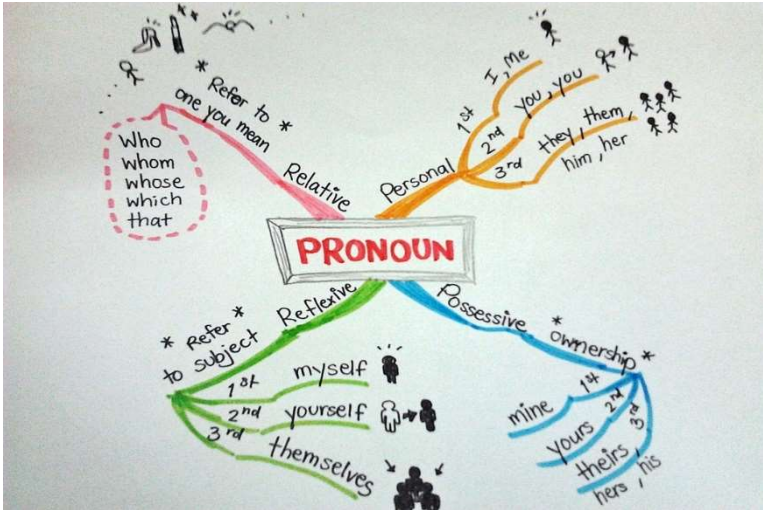 PRONOUN
* Refer to *
one you mean
Relative
Who
whom
whose
which
that
Personal
1st
I, Me
2nd
you, you
3rd
they, them,
him, her
Reflexive
* Refer *
to subject
1st
myself
2nd
yourself
3rd
themselves
Possessive
* ownership *
1st
mine
2nd
yours
3rd
theirs
hers, his